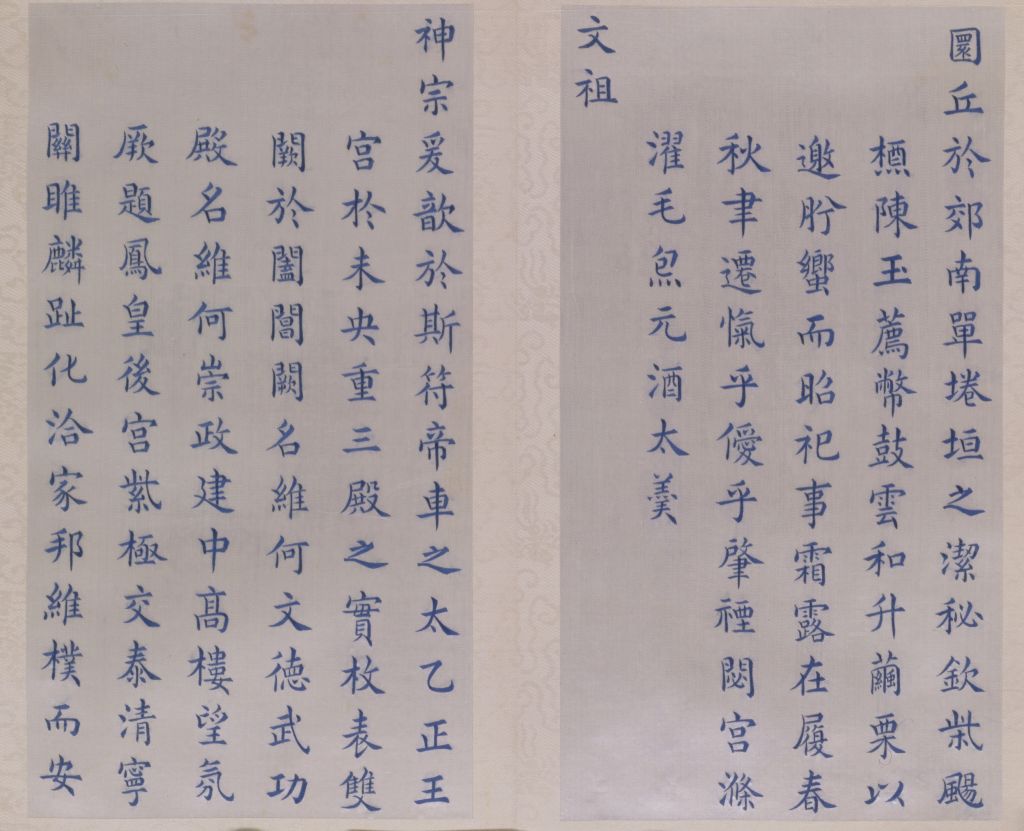 圜丘於郊南單埢垣之潔秘欽祡颺
槱陳玉薦幣鼓雲和升繭栗以
邀肸蠁而昭祀事霜露在履春
秋聿遷愾乎僾乎肇禋閟宫滌
濯毛炰元酒太羹
文祖
神宗爰歆於斯符帝車之太乙正王
宫於未央重三殿之實枚表雙
闕於闔閶闕名維何文德武功
殿名維何崇政建中髙樓望氛
厥題鳳皇後宫紫極交泰清寧
關雎麟趾化洽家邦維樸而安